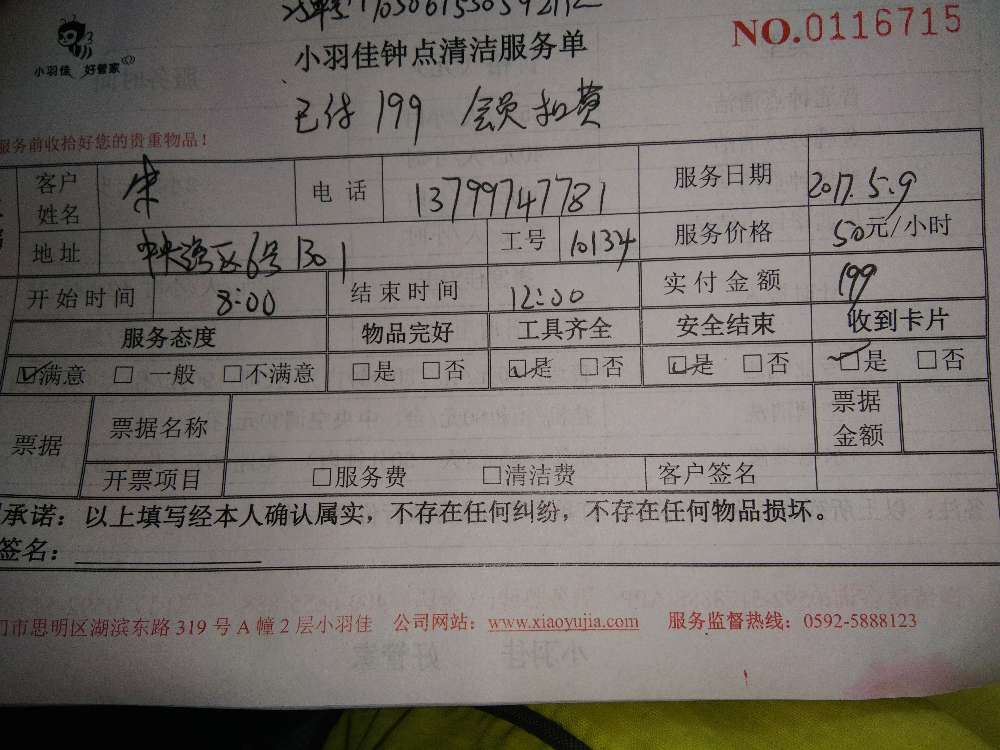 NO.0116715
小羽佳 好管家
小羽佳钟点清洁服务单
已付 199 会员扣费
服务前收拾好您的贵重物品！
客户姓名 朱 电话 13799747781 服务日期 2017.5.9
地址 中央湾区6号1301 工号 10134 服务价格 50元/小时
开始时间 8:00 结束时间 12:00 实付金额 199
服务态度 物品完好 工具齐全 安全结束 收到卡片
☑满意 □一般 □不满意 □是 □否 ☑是 □否 ☑是 □否 ☑是 □否
票据 票据名称 票据金额
开票项目 □服务费 □清洁费 客户签名
承诺：以上填写经本人确认属实，不存在任何纠纷，不存在任何物品损坏。
签名：
门市思明区湖滨东路 319 号 A 幢 2 层小羽佳 公司网站：www.xiaoyujia.com 服务监督热线：0592-5888123